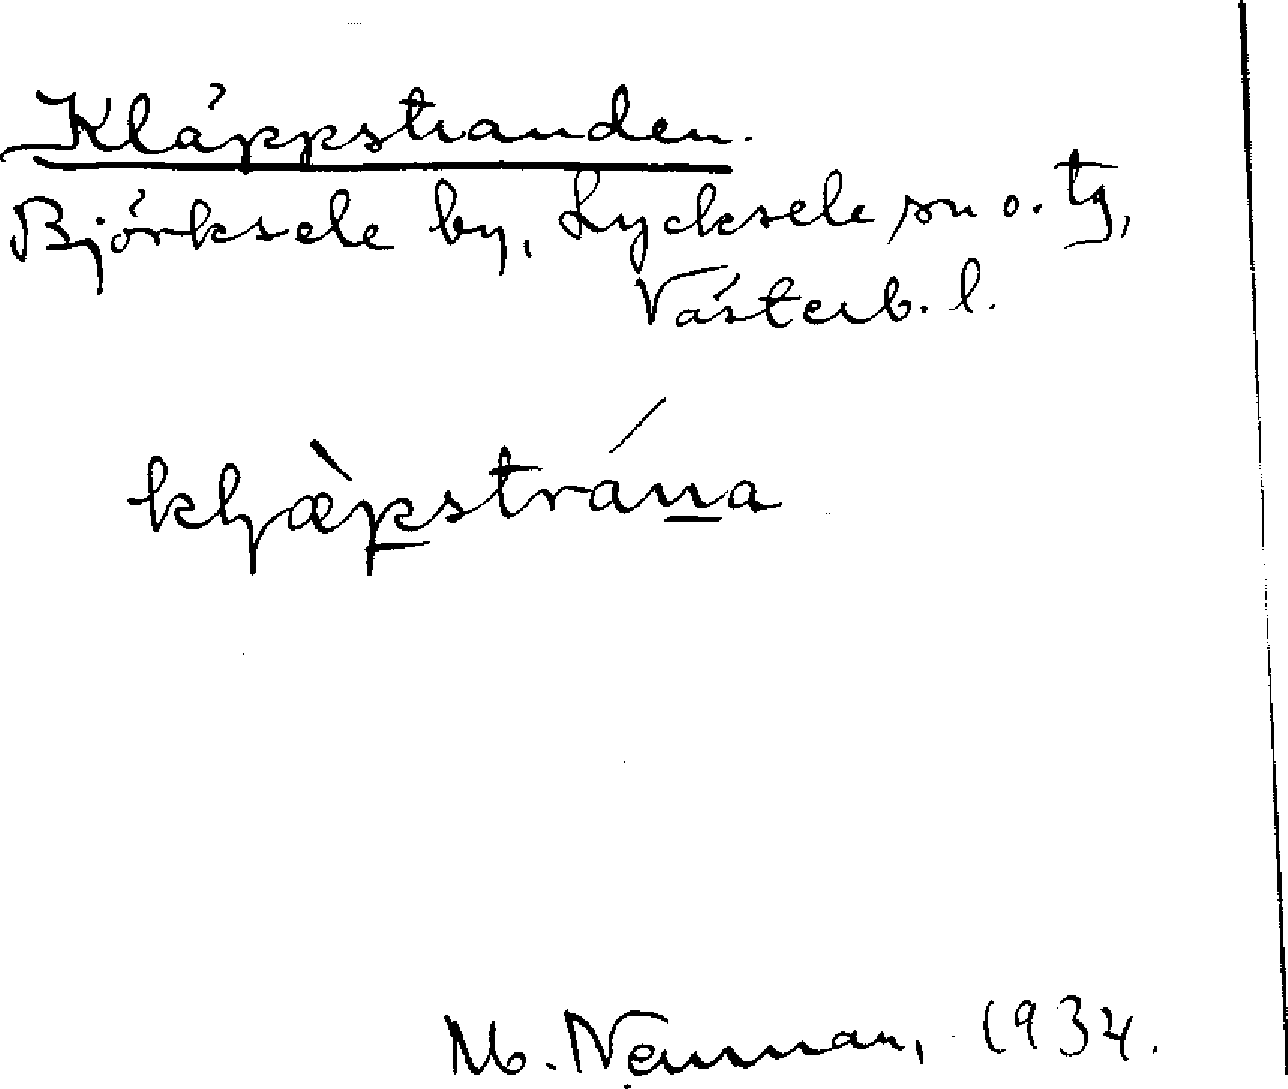 Kläppstranden.
Björksele by, Lycksele sn o. tg,
Västerb. l.
klþæ̀p̲strán̲a
M. Neuman, 1934.